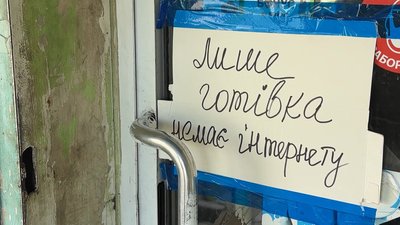 лише
готівка
немає інтернету